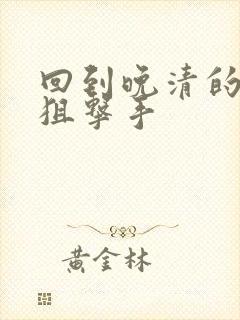 回到晚清的
狙擊手
黃金林